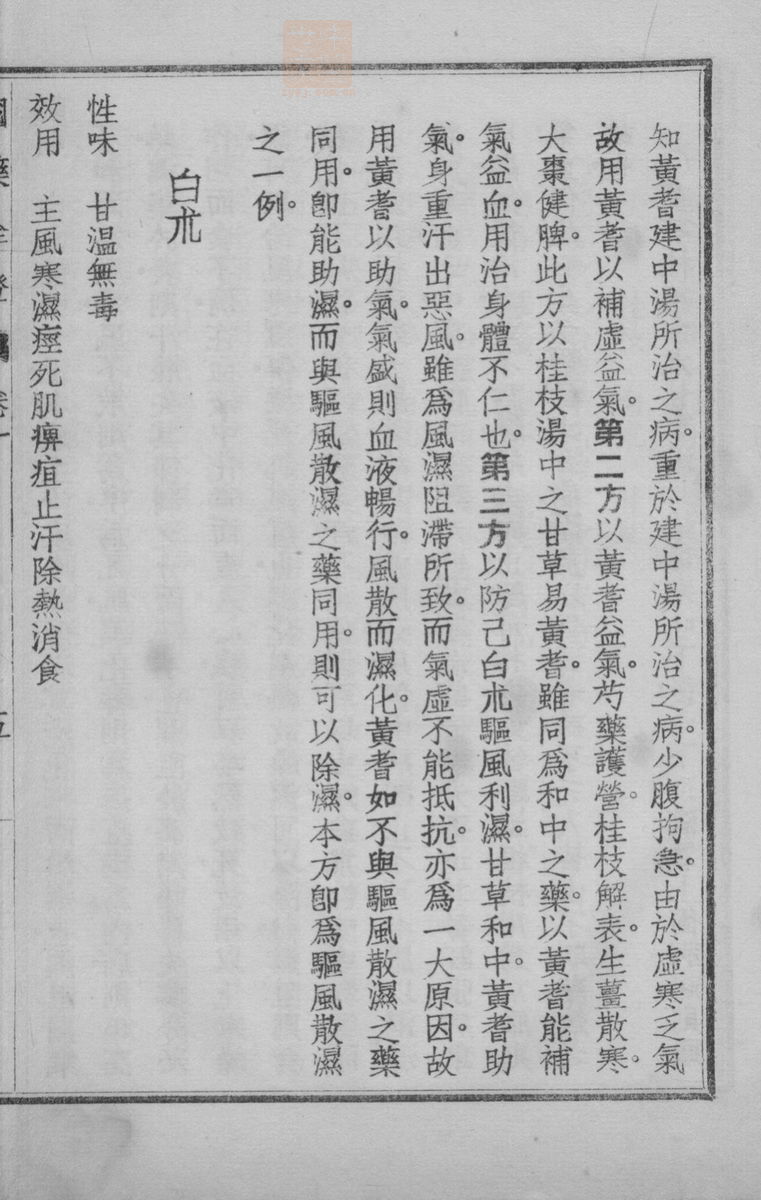 知黃耆建中湯所治之病。重於建中湯所治之病。少腹拘急。由於虛寒乏氣
故用黃耆以補虛益氣。第二方以黃耆益氣。芍藥護營。桂枝解表。生薑散寒。
大棗健脾。此方以桂枝湯中之甘草易黃耆。雖同爲和中之藥。以黃耆能補
氣益血。用治身體不仁也。第三方以防己白朮驅風利濕。甘草和中。黃耆助
氣。身重汗出惡風。雖爲風濕阻滯所致。而氣虛不能抵抗。亦爲一大原因。故
用黃耆以助氣。氣盛則血液暢行。風散而濕化。黃耆如不與驅風散濕之藥
同用。卽能助濕。而與驅風散濕之藥同用。則可以除濕。本方卽爲驅風散濕
之一例。
白朮
性味　甘温無毒
效用　主風寒濕痙死肌痹疽止汗除熱消食